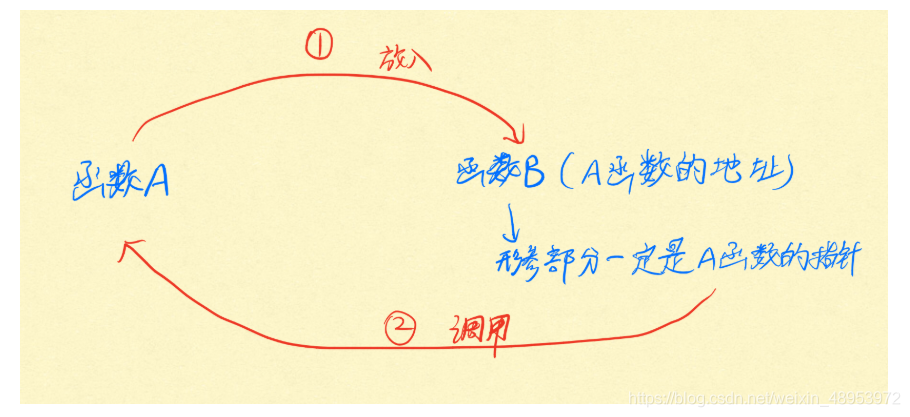 ① 放入
函数A
函数B(A函数的地址)
形参部分一定是A函数的指针
② 调用
https://blog.csdn.net/weixin_48953972